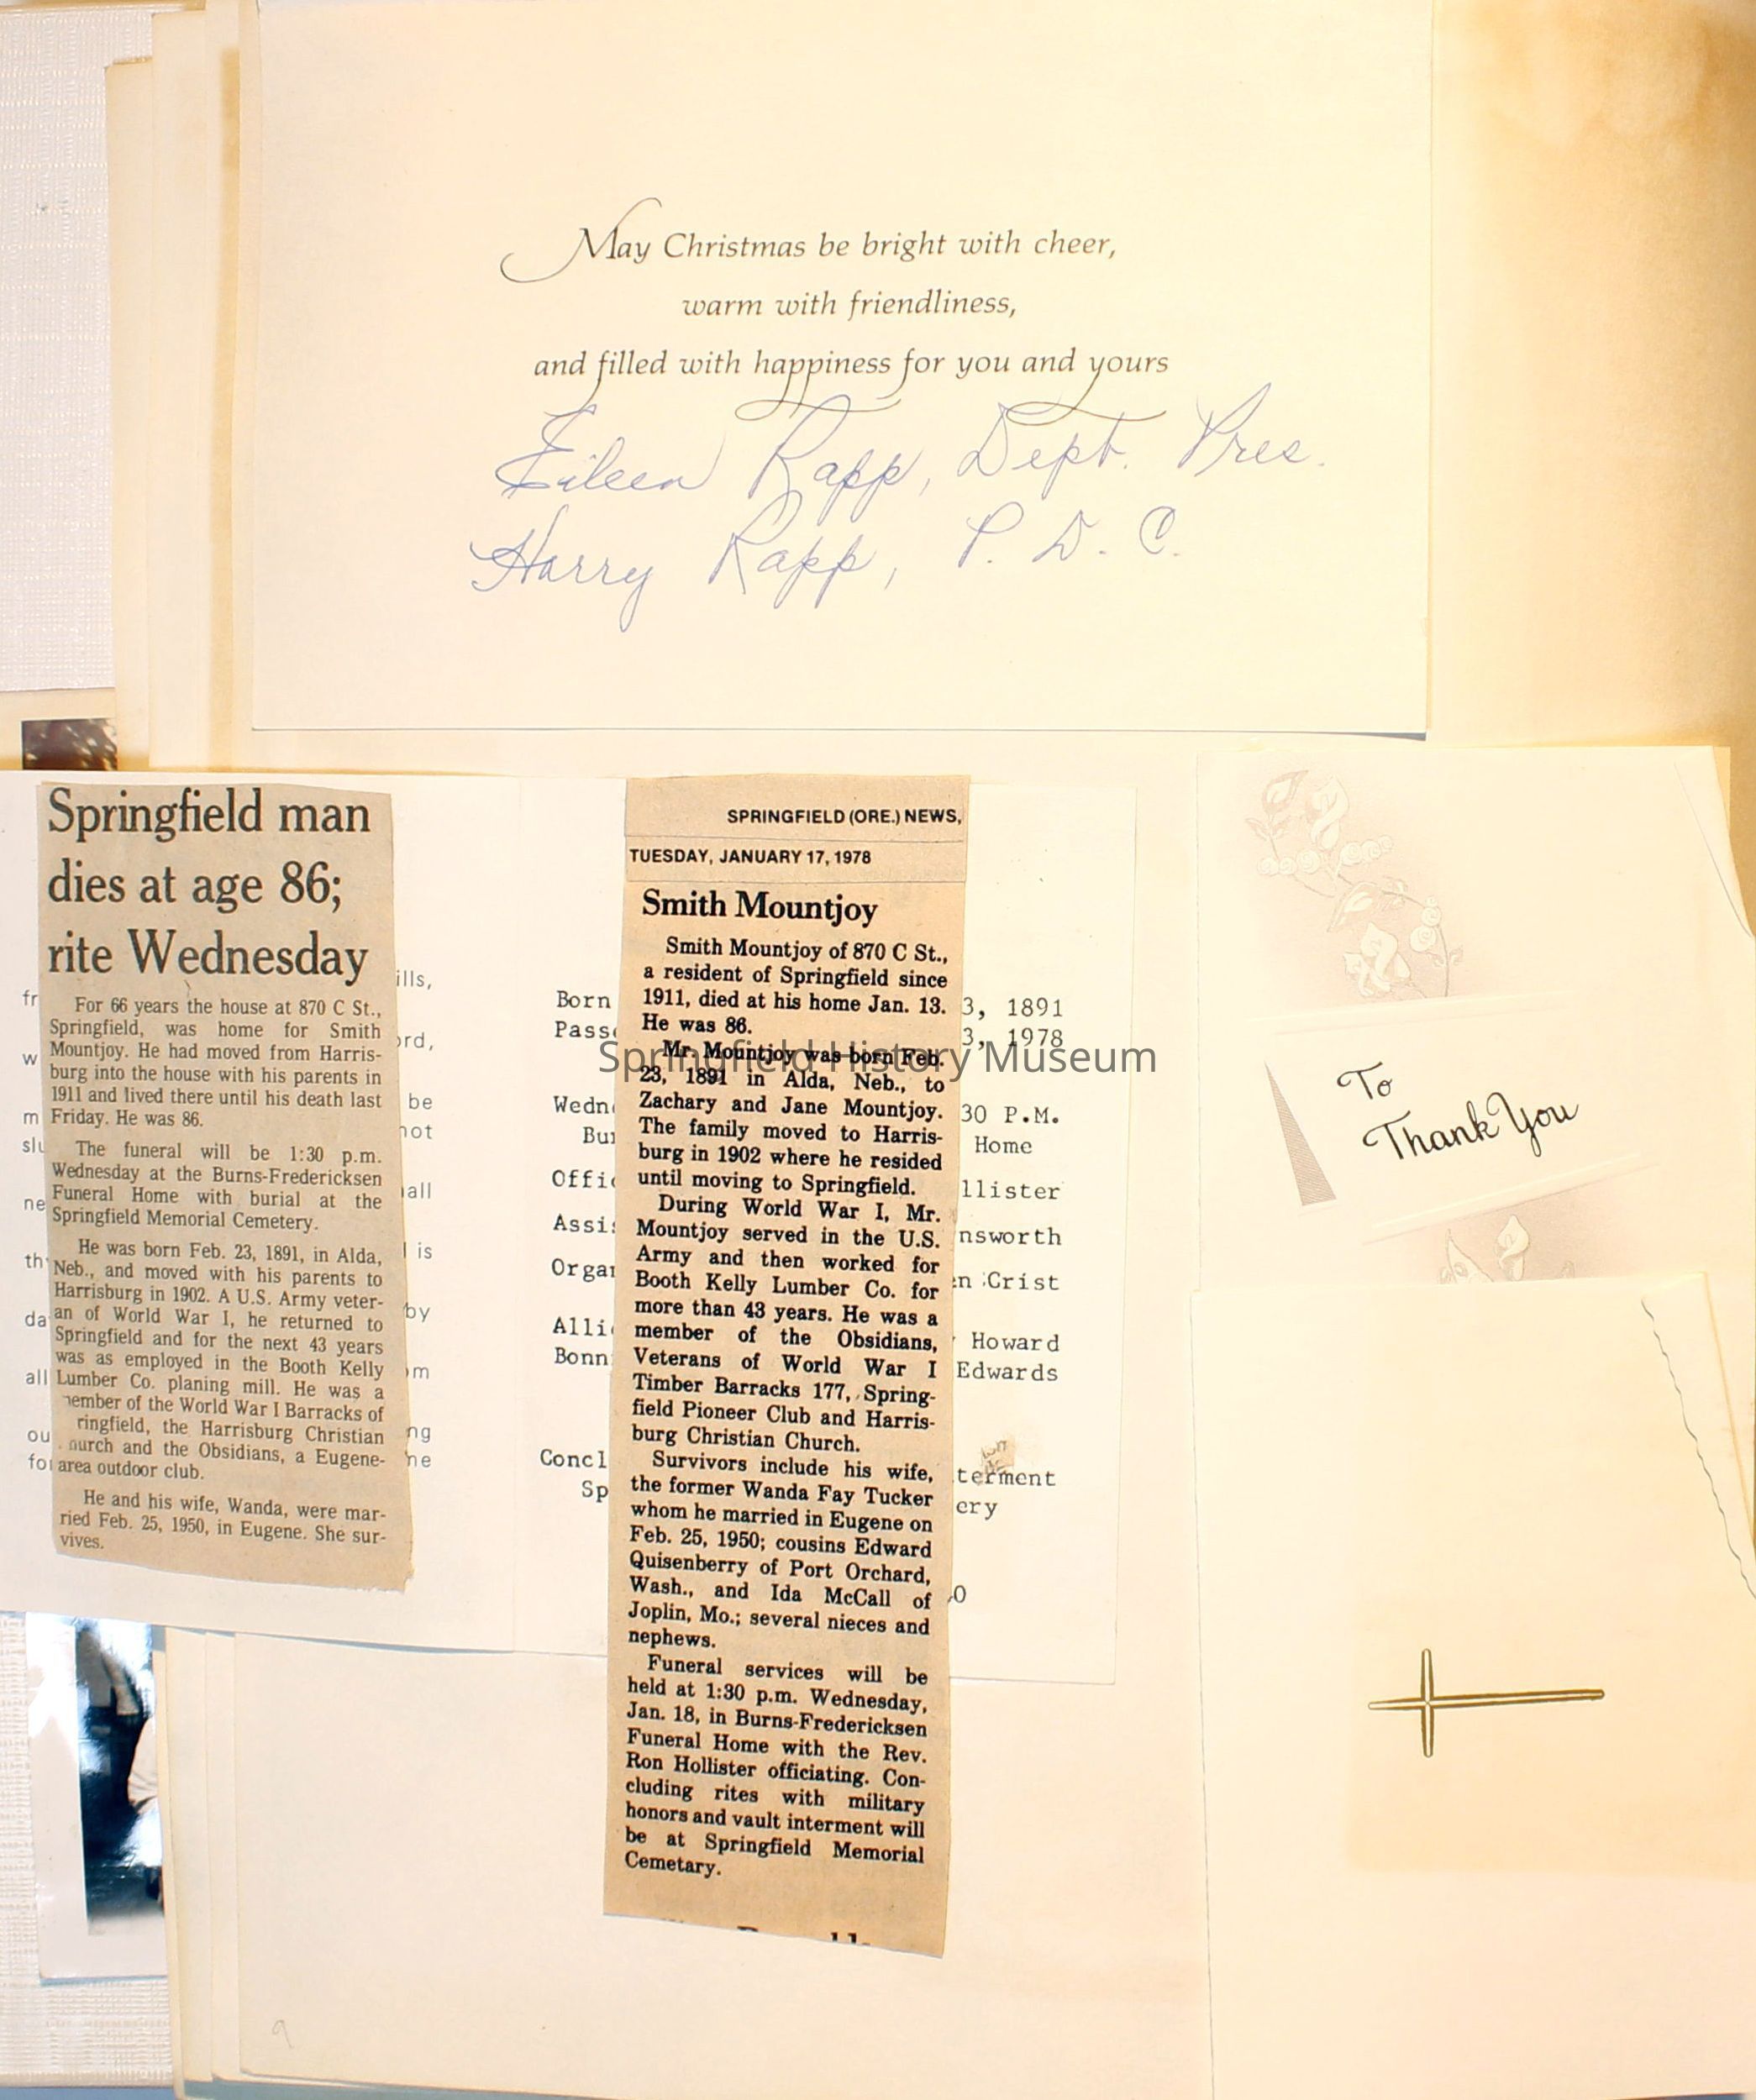 May Christmas be bright with cheer,
warm with friendliness,
and filled with happiness for you and yours
Eileen Rapp, Dept. Pres.
Harry Rapp, P. D. C.
Springfield man
dies at age 86;
rite Wednesday
For 66 years the house at 870 C St.,
Springfield, was home for Smith
Mountjoy. He had moved from Harris-
burg into the house with his parents in
1911 and lived there until his death last
Friday. He was 86.
The funeral will be 1:30 p.m.
Wednesday at the Burns-Fredericksen
Funeral Home with burial at the
Springfield Memorial Cemetery.
He was born Feb. 23, 1891, in Alda,
Neb., and moved with his parents to
Harrisburg in 1902. A U.S. Army veter-
an of World War I, he returned to
Springfield and for the next 43 years
was as employed in the Booth Kelly
Lumber Co. planing mill. He was a
member of the World War I Barracks of
ringfield, the Harrisburg Christian
urch and the Obsidians, a Eugene-
area outdoor club.
He and his wife, Wanda, were mar-
ried Feb. 25, 1950, in Eugene. She sur-
vives.
fr
w
m
slu
ne
th
da
all
ou
for
ills,
ord,
be
not
all
is
by
m
ng
he
Born
Passe
Wedn
Bur
Offic
Assis
Organ
Allic
Bonn
Concl
Sp
SPRINGFIELD (ORE.) NEWS,
TUESDAY, JANUARY 17, 1978
Smith Mountjoy
Smith Mountjoy of 870 C St.,
a resident of Springfield since
1911, died at his home Jan. 13.
He was 86.
Mr. Mountjoy was born Feb.
23, 1891 in Alda, Neb., to
Zachary and Jane Mountjoy.
The family moved to Harris-
burg in 1902 where he resided
until moving to Springfield.
During World War I, Mr.
Mountjoy served in the U.S.
Army and then worked for
Booth Kelly Lumber Co. for
more than 43 years. He was a
member of the Obsidians,
Veterans of World War I
Timber Barracks 177, Spring-
field Pioneer Club and Harris-
burg Christian Church.
Survivors include his wife,
the former Wanda Fay Tucker
whom he married in Eugene on
Feb. 25, 1950; cousins Edward
Quisenberry of Port Orchard,
Wash., and Ida McCall of
Joplin, Mo.; several nieces and
nephews.
Funeral services will be
held at 1:30 p.m. Wednesday,
Jan. 18, in Burns-Fredericksen
Funeral Home with the Rev.
Ron Hollister officiating. Con-
cluding rites with military
honors and vault interment will
be at Springfield Memorial
Cemetary.
3, 1891
3, 1978
30 P.M.
Home
llister
nsworth
en Crist
Howard
Edwards
terment
ery
0
To
Thank You
Springfield History Museum
9